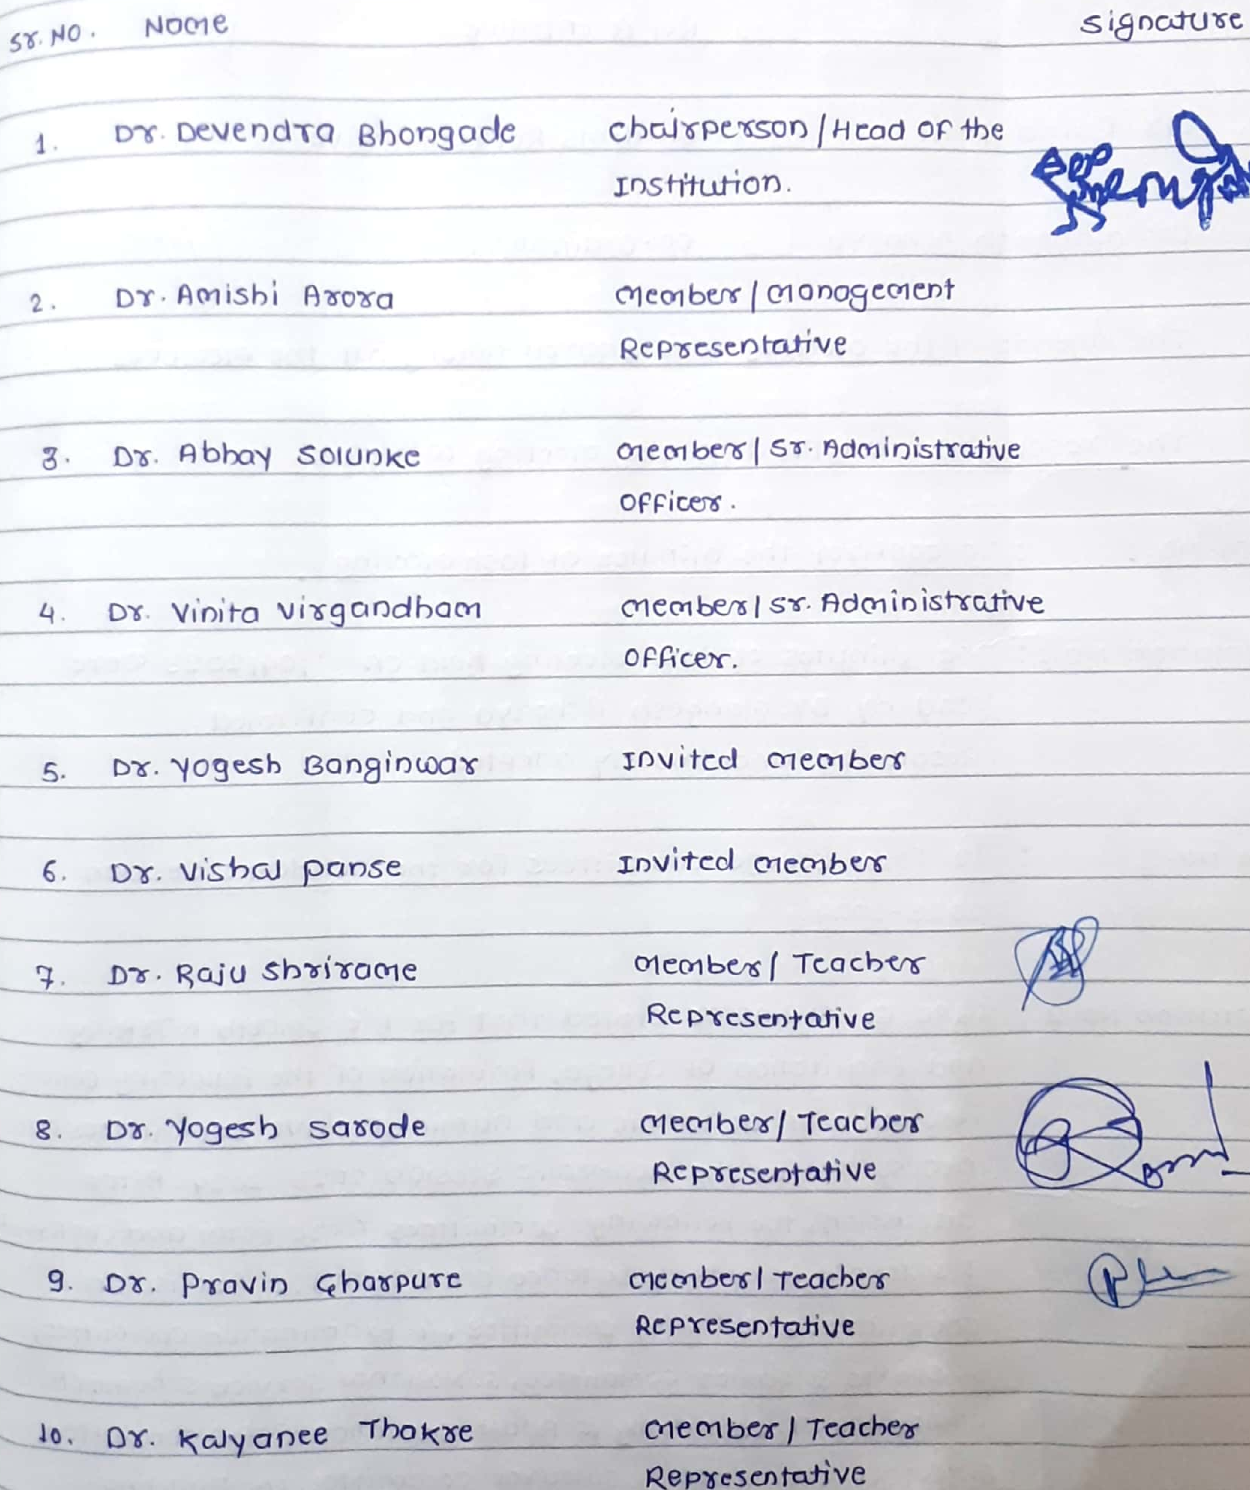 Sr. No. Name Signature
1. Dr. Devendra Bhongade Chairperson / Head of the
Institution.
2. Dr. Amishi Arora Member / Management
Representative
3. Dr. Abhay Solunke Member / Sr. Administrative
Officer.
4. Dr. Vinita Virgandham Member / Sr. Administrative
Officer.
5. Dr. Yogesh Banginwar Invited Member
6. Dr. Vishal Panse Invited Member
7. Dr. Raju Shrirame Member / Teacher
Representative
8. Dr. Yogesh Sarode Member / Teacher
Representative
9. Dr. Pravin Gharpure Member / Teacher
Representative
10. Dr. Kalyanee Thakre Member / Teacher
Representative